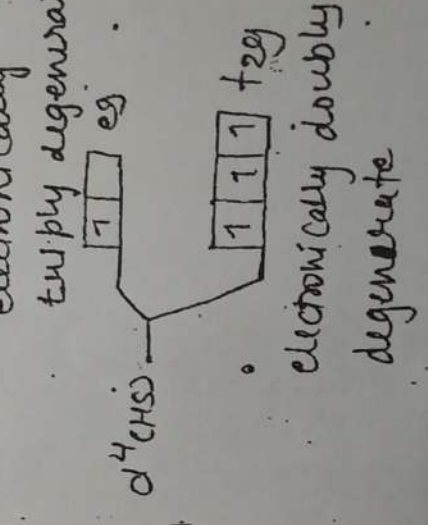 triply degenera
1 eg
d⁴(HS)
1 1 1 t2g
electronically doubly
degenerate